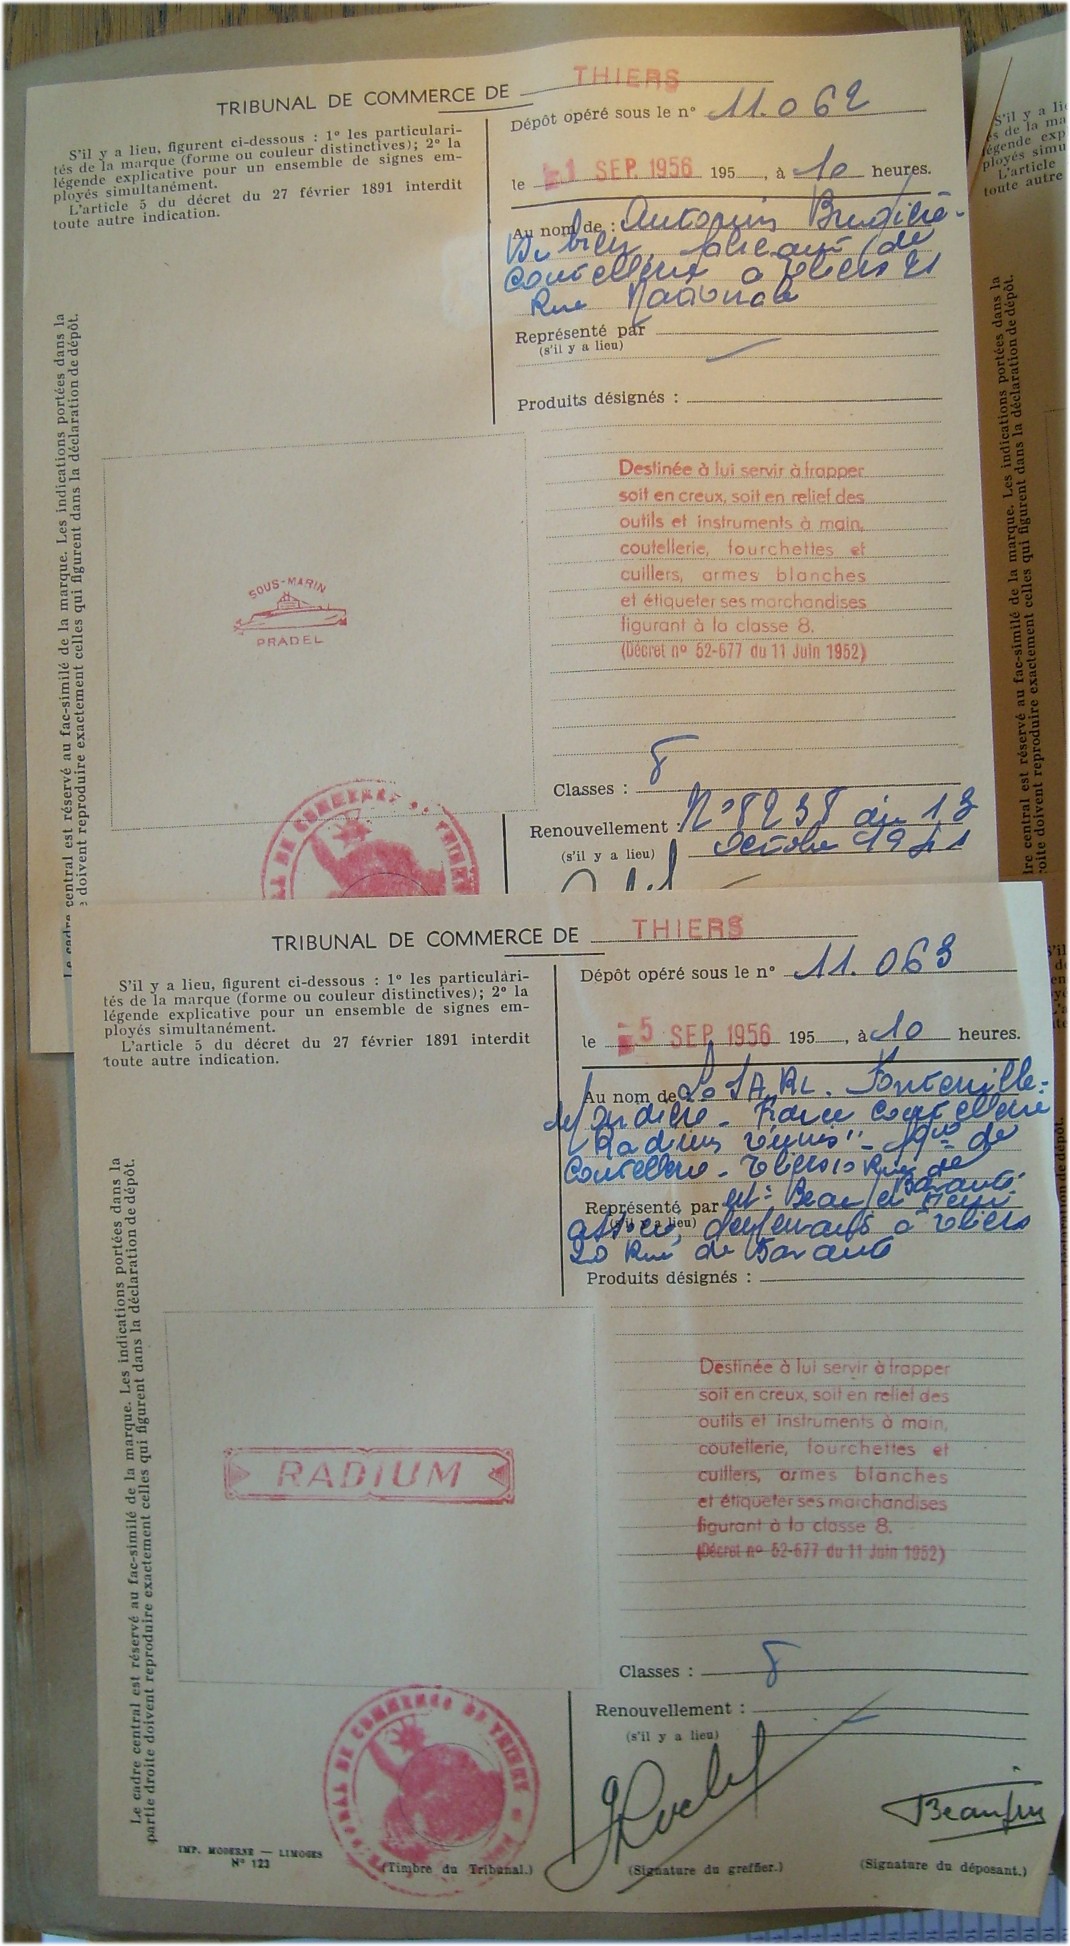 TRIBUNAL DE COMMERCE DE THIERS
S'il y a lieu, figurent ci-dessous : 1º les particulari-
tés de la marque (forme ou couleur distinctives); 2º la
légende explicative pour un ensemble de signes em-
ployés simultanément.
L'article 5 du décret du 27 février 1891 interdit
toute autre indication.
Dépôt opéré sous le nº 11.062
le 1 SEP. 1956 195 , à 10 heures.
Au nom de : Antonin Brugière-
de
coutellerie à Thiers 21
Rue Nationale
Représenté par
(s'il y a lieu)
Produits désignés :
Destinée à lui servir à frapper
soit en creux, soit en relief des
outils et instruments à main,
coutellerie, fourchettes et
cuillers, armes blanches
et étiqueter ses marchandises
figurant à la classe 8.
(Décret nº 52-677 du 11 Juin 1952)
SOUS-MARIN
PRADEL
Classes : 8
Renouvellement : Nº 8238 du 13
(s'il y a lieu) octobre 1941
Le cadre central est réservé au fac-similé de la marque. Les indications portées dans la
doivent reproduire exactement celles qui figurent dans la déclaration de dépôt.
S'il y a li
és de la ma
légende exp
ployés simu
L'article
toute autre
dre central est réservé au fac-similé de la marque. Les indications portées dans la
oite doivent reproduire exactement celles qui figurent dans la déclaration de dépôt.
TRIBUNAL DE COMMERCE DE THIERS
S'il y a lieu, figurent ci-dessous : 1º les particulari-
tés de la marque (forme ou couleur distinctives); 2º la
légende explicative pour un ensemble de signes em-
ployés simultanément.
L'article 5 du décret du 27 février 1891 interdit
toute autre indication.
Dépôt opéré sous le nº 11.063
le 5 SEP. 1956 195 , à 10 heures.
Au nom de La SARL. Fontenille-
France coutellerie
Radium réunis" - de
Coutellerie - Thiers 20 Rue de
Barante
Représenté par
(s'il y a lieu)
associé, demeurant à Thiers
20 Rue de Barante
Produits désignés :
Destinée à lui servir à frapper
soit en creux, soit en relief des
outils et instruments à main,
coutellerie, fourchettes et
cuillers, armes blanches
et étiqueter ses marchandises
figurant à la classe 8.
(Décret nº 52-677 du 11 Juin 1952)
RADIUM
Classes : 8
Renouvellement :
(s'il y a lieu)
Le cadre central est réservé au fac-similé de la marque. Les indications portées dans la
partie droite doivent reproduire exactement celles qui figurent dans la déclaration de dépôt.
IMP. MODERNE — LIMOGES
Nº 123
(Timbre du Tribunal.)
(Signature du greffier.)
(Signature du déposant.)